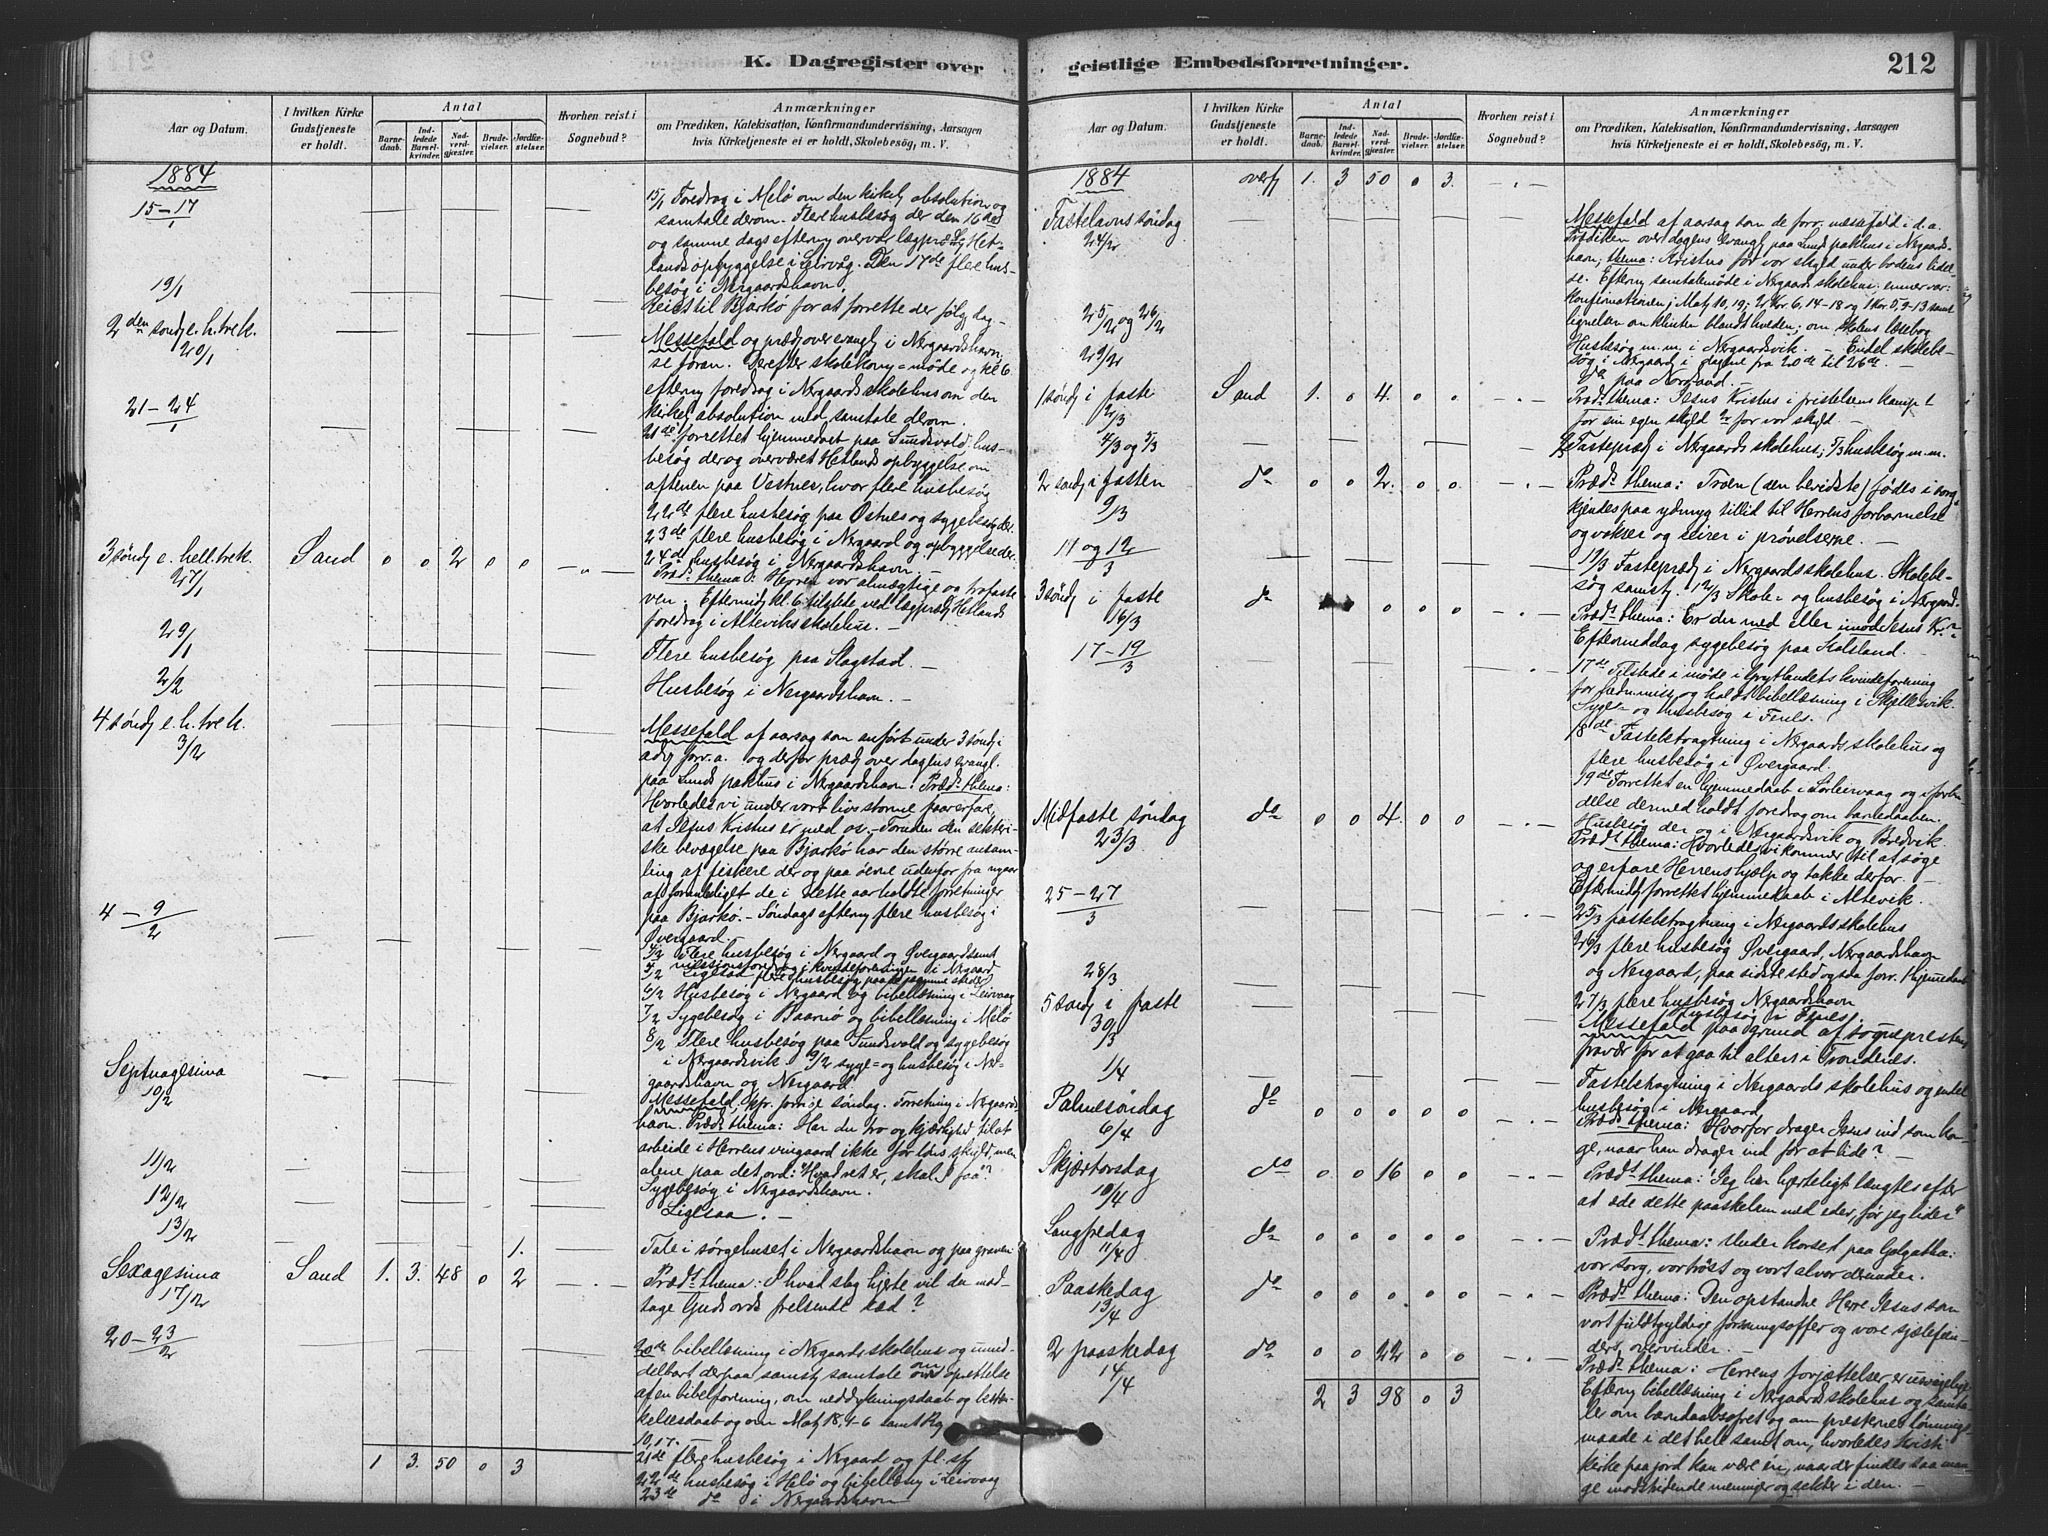 K. Dagregister over
Aar og Datum.
I hvilken Kirke
Gudstjeneste
er holdt.
Antal
Barne-
daab.
Ind-
ledede
Barsel-
kvinder.
Nad-
verd-
gjæster.
Brude-
vielser.
Jordfæ-
stelser.
Hvorhen reist i
Sognebud?
Anmærkninger
om Prædiken, Katekisation, Konfirmandundervisning, Aarsagen
hvis Kirketjeneste ei er holdt, Skolebesøg, m. V.
1884
15–17/1
15/1 Foredrag i Melö om den kirkelj absolution og
samtale derom. Flere husbesøg der den 16de
og samme dags efterm overvær lægpræd Het-
lands opbyggelse i Leirvåg. Den 17de flere hus-
besøg i Nergaardshavn.
19/1
Reist til Bjarkö for at forrette der følgj dag –
2den søndj e. h. tre k.
20/1
Messefald og prædj over evanglj i Nergaardshavn,
se foran. Derefter skolekom = møde og kl 6
efterm foredrag i Nergaards skolehus om den
kirkelj absolution med samtale derom.
21–24/1
21de forrettet hjemmedaab paa Sundsvold, hus-
besøg der og overværet Hetlands opbyggelse om
aftenen paa Vestnes, hvor flere husbesøg
22de flere husbesøg paa Østnes og sygebesøg der.
23de flere husbesøg i Nergaard og opbyggelse der.
24de husbesøg i Nergaardshavn
3 søndj e. hell. tre k.
27/1
Sand 0 0 2 0 0
Præds thema: Herren vor almægtige og trofaste
ven. Eftermidj kl. 6 tilstede ved lægprædj Hetlands
foredrag i Alteviks skolehus. –
29/1
Flere husbesøg paa Slagstad. –
2/2
Husbesøg i Nergaardshavn. –
4 søndj e. h. tre k.
3/2
Messefald af aarsag som anført under 3 søndj i
adj forr. a. og derfor prædj over dagens evangl.
paa Lunds pakhus i Nergaardshavn. Præds thema:
Hvorledes vi under vort livs storme paa erfare,
at Jesus Kristus er med os. – Foruden den sekteri-
ske bevægelse paa Bjarkö har den større ansam-
ling af fiskere der og paa øerne udenfor fra nyaar
af foranlediget de i dette aar holdte forretninger
paa Bjarkö. – Søndags efterm flere husbesøg i
Øvergaard.
4–9/2
4/2 Flere husbesøg i Nergaard og Øvergaard samt
missionsforedrag i kvindeforeningen i Nergaard
5/2 Ligesaa flere husbesøg paa de samme steder
6/2 Husbesøg i Nergaard og bibellæsning i Leirvaag
7/2 Sygebesøg i Baarnö og bibellæsning i Melö
8/2 Flere husbesøg paa Sundsvold og sygebesøg
i Nergaardsvik. 9/2 syge= og husbesøg i Ner-
gaardshavn og Nergaard.
Septuagesima
10/2
Messefald, kfr. forrige søndag. Forretning i Nergaards-
havn. Præds thema: Har du tro og kjærlighed til at
arbeide i Herrens vingaard ikke for løns skyld, men
alene paa det ord: "Hvad ret er, skal I faa"?
11/2
Sygebesøg i Nergaardshavn.
12/2
Ligesaa. –
13/2
1.
Tale i sørgehuset i Nergaardshavn og paa graven
Sexagesima
17/2
Sand 1. 3. 48 0 2
Præds thema: I hvad slag hjerte vil du mod-
tage Guds ords frelsende sæd?
20–23/2
20de bibellæsning i Nergaards skolehus og umid-
delbart derpaa samstj samtale om oprettelse
af en bibelforening, om neddykningsdaab og besk-
kelsesdaab og om Matj 18, 4–6 samt
10, 17. –
21de flere husbesøg i Nergaard og
22de husbesøg i Melö og bibellæsn i Leirvaag
23de do i Nergaardshavn
1 3. 50 0 3
geistlige Embedsforretninger.
212
Aar og Datum.
I hvilken Kirke
Gudstjeneste
er holdt.
Antal
Barne-
daab.
Ind-
ledede
Barsel-
kvinder.
Nad-
verd-
gjæster.
Brude-
vielser.
Jordfæ-
stelser.
Hvorhen reist i
Sognebud?
Anmærkninger
om Prædiken, Katekisation, Konfirmandundervisning, Aarsagen
hvis Kirketjeneste ei er holdt, Skolebesøg, m. V.
1884
overf 1. 3 50 0 3.
Fastelavns søndag
24/2
Messefald af aarsag som de forr. messefald i d. a.
Prædiken over dagens evanglj paa Lunds pakhus i Nergaards-
havn; thema: Kristus for vor skyld under bodens lidel-
se. Efterm samtalemøde i Nergaards skolehus; emner var:
konfirmationen; Matj 10, 19; 2 Kor 6. 14–18 og 1 Kor. 5, 9–13 samt
lignelsen om klinten blandt hveden; om skolens læsebog
25/2 og 26/2
Husbesøg m. m. i Nergaardsvik. – Endel skolebe-
søg i Nergaard i dagene fra 20de til 26de. –
29/2
Do paa Nordsand.
1 søndj i faste
2/3
Sand 1. 0 4. 0 0
Præds thema: Jesus Kristus i fristelsens kamp 1
for sin egen skyld 2 for vor skyld.
4/3 og 5/3
Fasteprædj i Nergaards skolehus; 5/3 husbesøg m. m.
2 søndj i fasten
9/3
do 0 0 2. 0 0
Præds thema: Troen (den bevidste) fødes i sorg
kjendes paa ydmyg tillid til Herrens forbarmelse
og vokser og seirer i prøvelserne. –
11 og 12/3
11/3 Fasteprædj i Nergaards skolehus. Skolebe-
søg samstj. 12/3 Skole= og husbesøg i Nergaard.
3 søndj i faste
16/3
do 0 0 0
Præds thema: Er du med eller imod Jesus Kr.?
Eftermeddag sygebesøg paa Stolsland. –
17–19/3
17de Tilstede i møde i Grytlandets kvindeforening
for hedn. miss og holdt bibellæsning i Skjellesvik
Syge= og husbesøg i Fenes.
18de Fastebetragtning i Nergaards skolehus og
flere husbesøg i Øvergaard.
19de Forrettet en hjemmedaab i Lorleirvaag og i forbin-
delse dermed holdt foredrag om barnedaaben.
Husbesøg der og i Nergaardsvik og Bredvik.
Midfaste søndag
23/3
do 0 0 4. 0 0
Præds thema: Hvorledes vi kommer til at søge
og erfare Herrens hjælp og takke derfor. –
Eftermidj forrettet hjemmedaab i Altevik.
25–27/3
25/3 fastebetragtning i Nergaards skolehus
26/3 flere husbesøg Øvergaard, Nergaardshavn
og Nergaard, paa sidste sted ogsaa forr. 1 hjemmedaab
27/3 flere husbesøg Nergaardshavn
28/3
Husbesøg i Fenes.
5 søndj i faste
30/3
Messefald paa grund af sognepresten
fravær for at gaa til alters i Trondenes.
1/4
Fastebetragtning i Nergaards skolehus og endel
husbesøg i Nergaard
Palmesøndag
6/4
do 0 0 0 0 0
Præds thema: Hvorfor drager Jesus ind som kon-
ge, naar han drager ind for at lide? –
Skjærtorsdag
10/4
do 0 0 16 0 0
Præds thema: "Jeg har hjerteligt længtes efter
at æde dette paaskelam med eder, før jeg lider"
Langfredag
11/4
do 0 0 0 0 0
Præds thema: Under korset paa Golgatha:
vor sorg, vor trøst og vort alvor derunder.
Paaskedag
13/4
do 0 0 0 0 0
Præds thema: Den opstandne Herre Jesus som
vort fuldtgyldige forsoningsoffer og vore sjælefien-
ders overvinder.
2 paaskedag
14/4
do 0 0 22 0 0
Præds thema: Herrens forjættelser er usvigelige
Efterm bibellæsning i Nergaards skolehus og samta-
ler om barndaabsofret og om presternes lønnings-
maade i det hele samt om, hvorledes Kristi
kirke paa jord kan være én, naar der findes saa man-
ge modstridende meninger og sekter i den. –
2 3 98 0 3